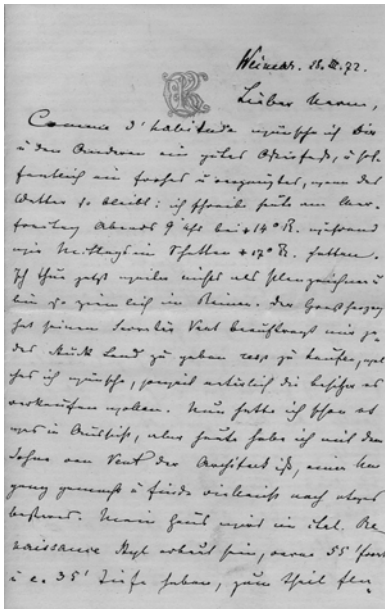 Weimar. 28. III. 72.
Lieber Mann,
Comme d'habitude wünsche ich Dir
u den Anderen ein gutes Osterfest, u hof
fentlich ein frohes u vergnügtes, wenn das
Wetter so bleibt: ich schreibe heute am Char-
freitag Abends 9 Uhr bei +14° R. während
wir Mittags im Schatten +17° R. hatten.
Ich thue jetzt weiter nichts als Plan zeichnen u
bin so ziemlich im Reinen. Der Großherzog
hat seinem Vent beauftragt mir je-
des Stück Land zu geben resp zu kaufen, wel
ches ich wünsche, soweit natürlich die Besitzer es
verkaufen wollen. Nun hatte ich schon et
was in Aussicht, aber heute habe ich mit dem
Sohne von Vent der Architect ist, einen Um
gang gemacht u finde vielleicht noch etwas
besseres. Mein Haus wird im ital. Re
naissance Styl erbaut sein, 55' Front
u c. 35' Tiefe haben, zum Theil